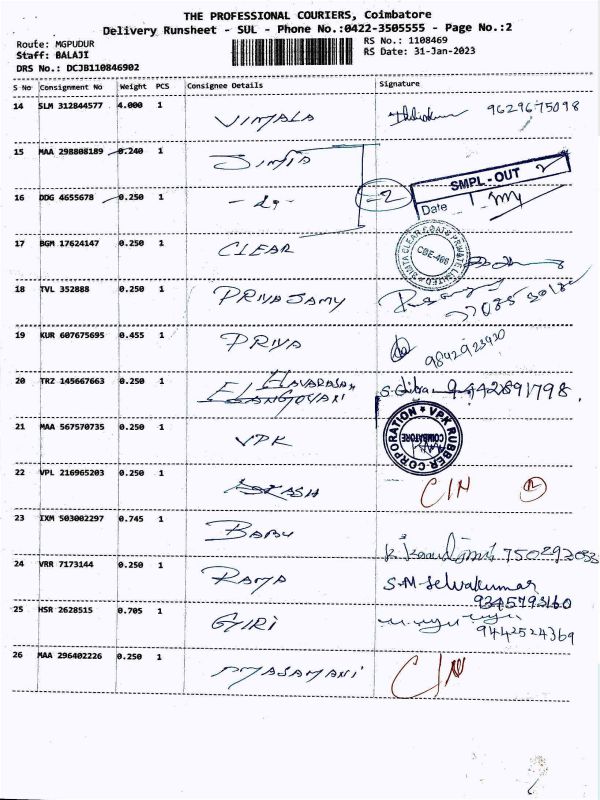 THE PROFESSIONAL COURIERS, Coimbatore
Delivery Runsheet - SUL - Phone No.:0422-3505555 - Page No.:2
Route: MGPUDUR
RS No.: 1108469
Staff: BALAJI
RS Date: 31-Jan-2023
DRS No.: DCJB110846902
S No Consignment No Weight PCS Consignee Details Signature
14 SLM 312844577 4.000 1 VIMALA 9629675098
15 MAA 298808189 0.240 1
SMPL - OUT
16 DDG 4655678 0.250 1 2
Date
17 BGM 17624147 0.250 1 CLEAR CBE-406
18 TVL 352888 0.250 1 PRIYA SAMY
19 KUR 607675695 0.455 1 PRIYA 9842923920
20 TRZ 145667663 0.250 1 ELAVARASAN 9442891798
21 MAA 567570735 0.250 1 VPK VPK RUBBER CORPORATION COIMBATORE
22 VPL 216965203 0.250 1 CIN
23 IXM 503002297 0.745 1 BABU
24 VRR 7173144 0.250 1 RAMA S.M. Selvakumar
9345793160
25 HSR 2628515 0.705 1 GIRI
9442524369
26 MAA 296402226 0.250 1 MASAMANI CIN